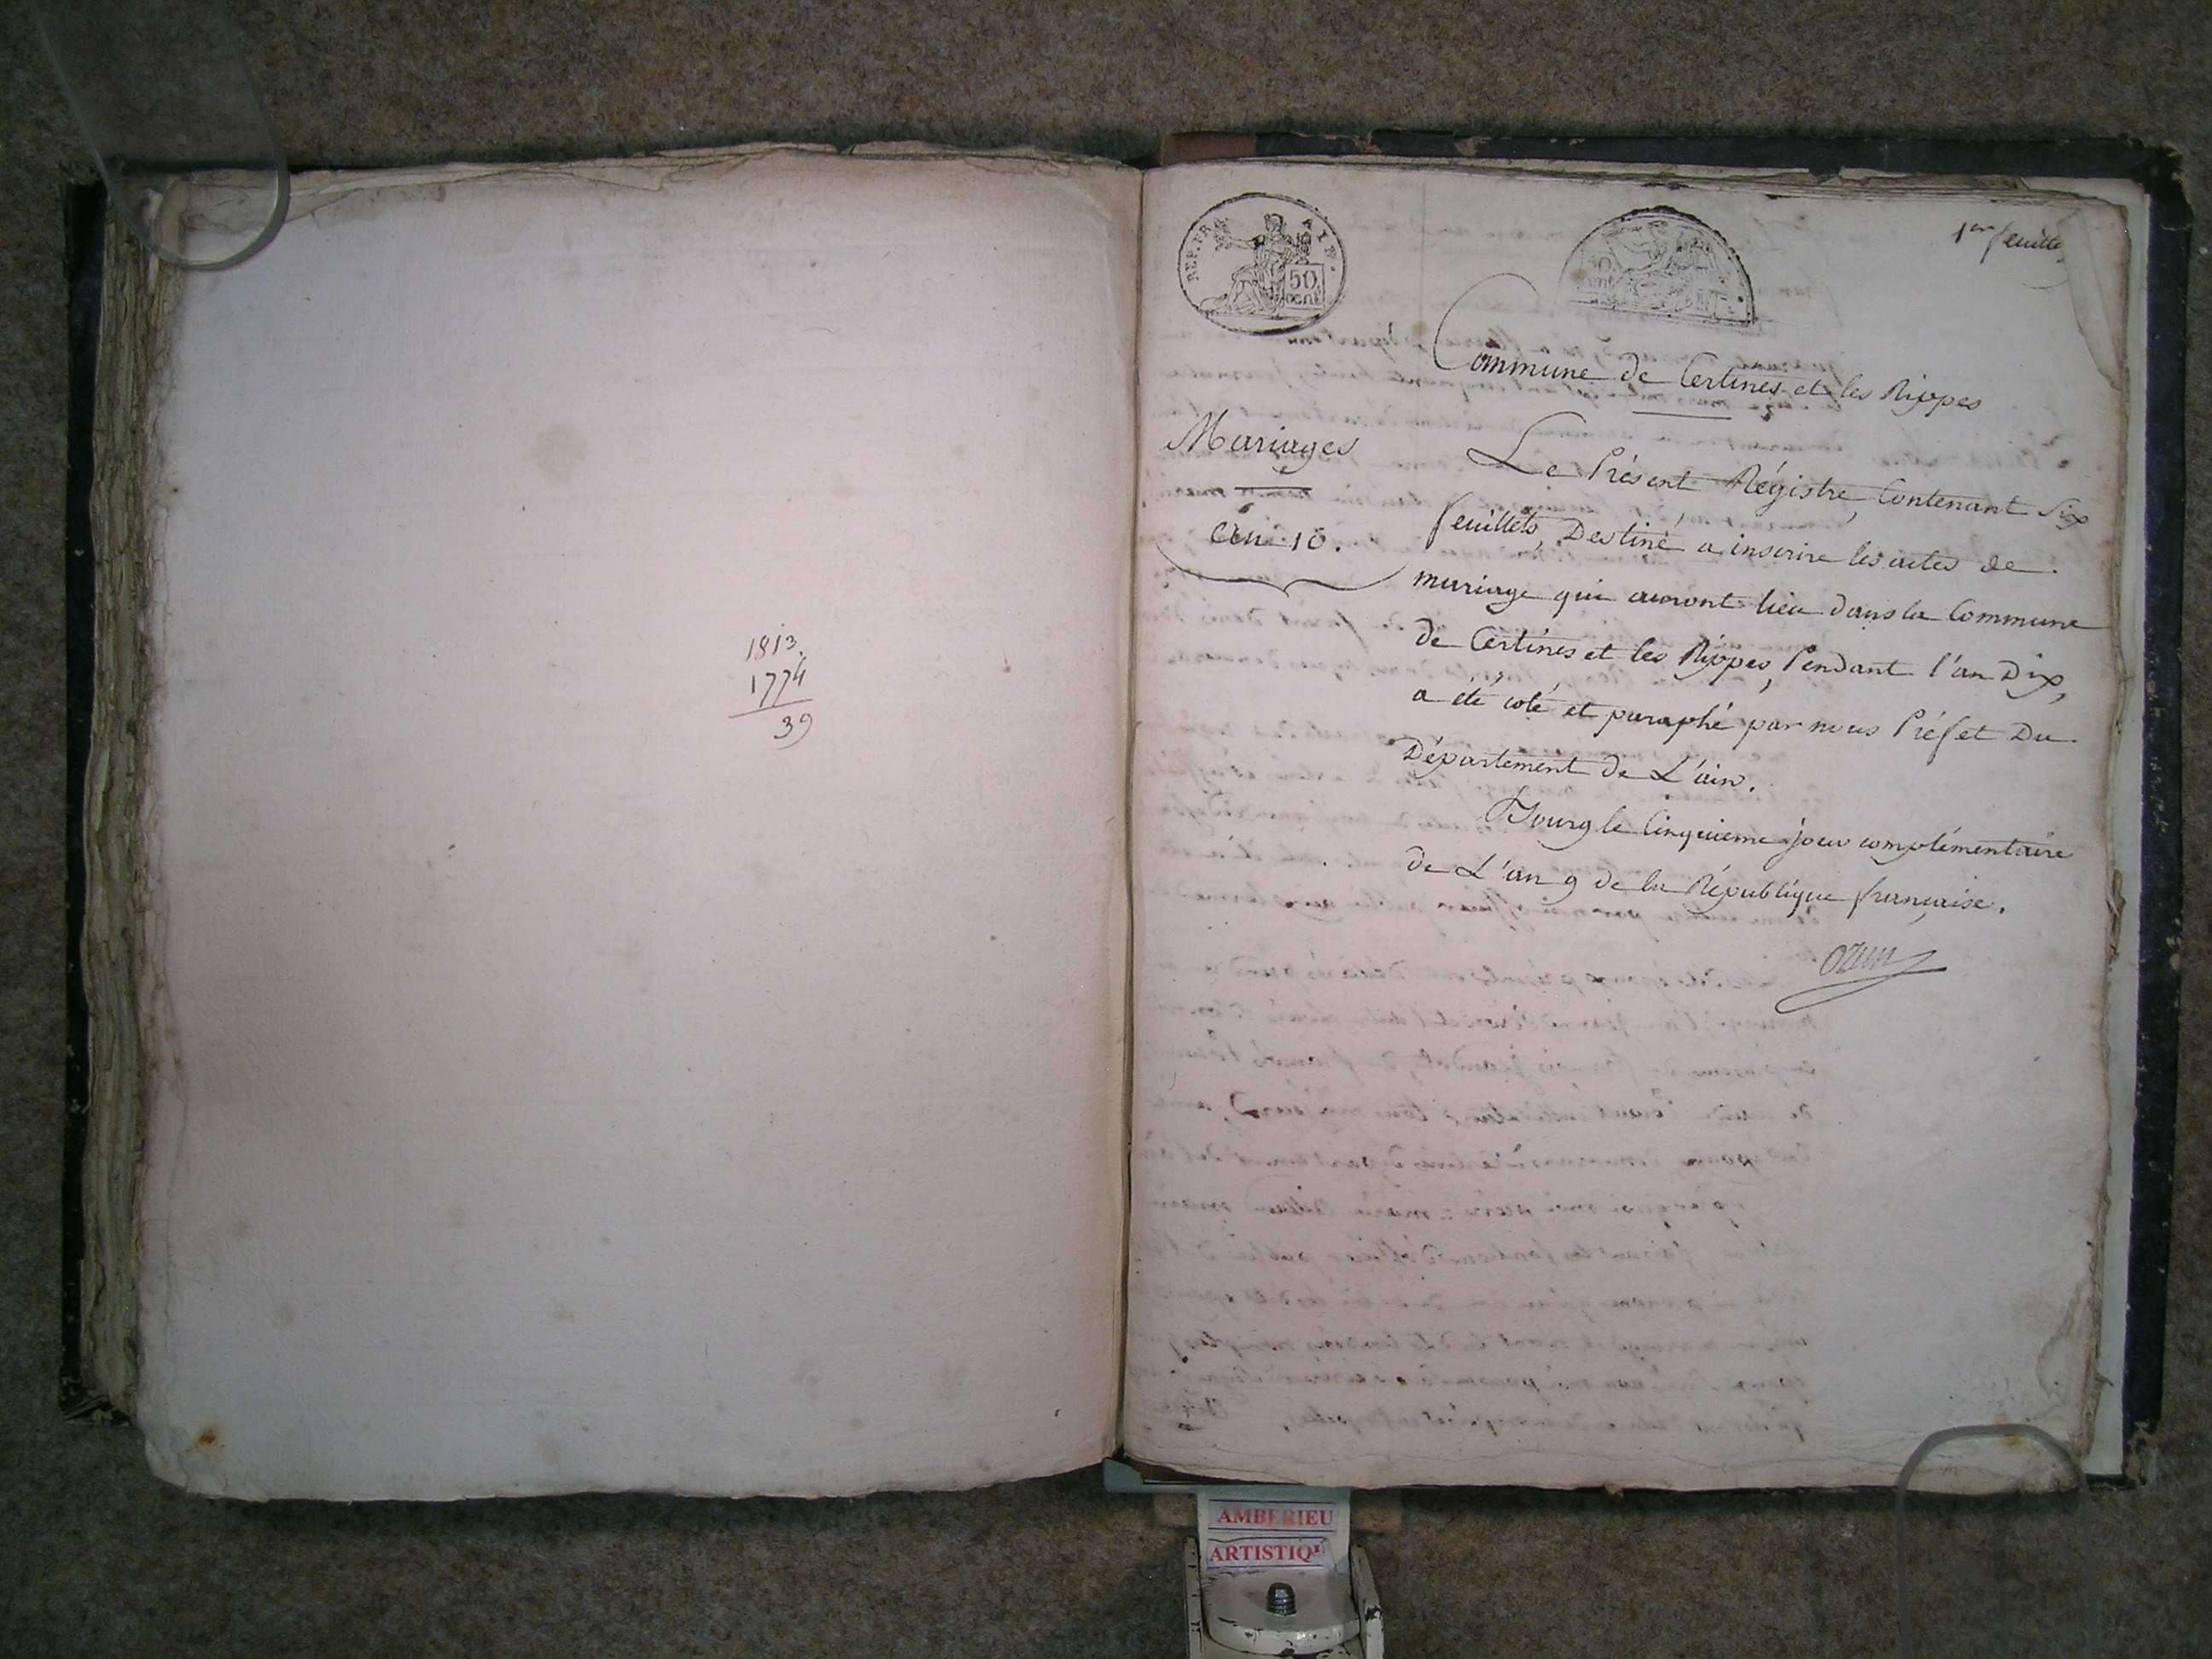 1813.
1774
39
REP. FRA
AIN.
50
cent
1er feuillet
Commune de Certines et les Rippes
Mariages
an 10.
Le Présent Régistre, Contenant Six
feuillets, Destiné a inscrire les actes de
mariage qui auront lieu dans la Commune
de Certines et les Rippes, Pendant l'an Dix,
a été coté et paraphé par nous Préfet Du
Département de L'ain.
Bourg le Cinquieme jour complémentaire
de L'an 9 de la République française.
Ozun
AMBERIEU
ARTISTIQ